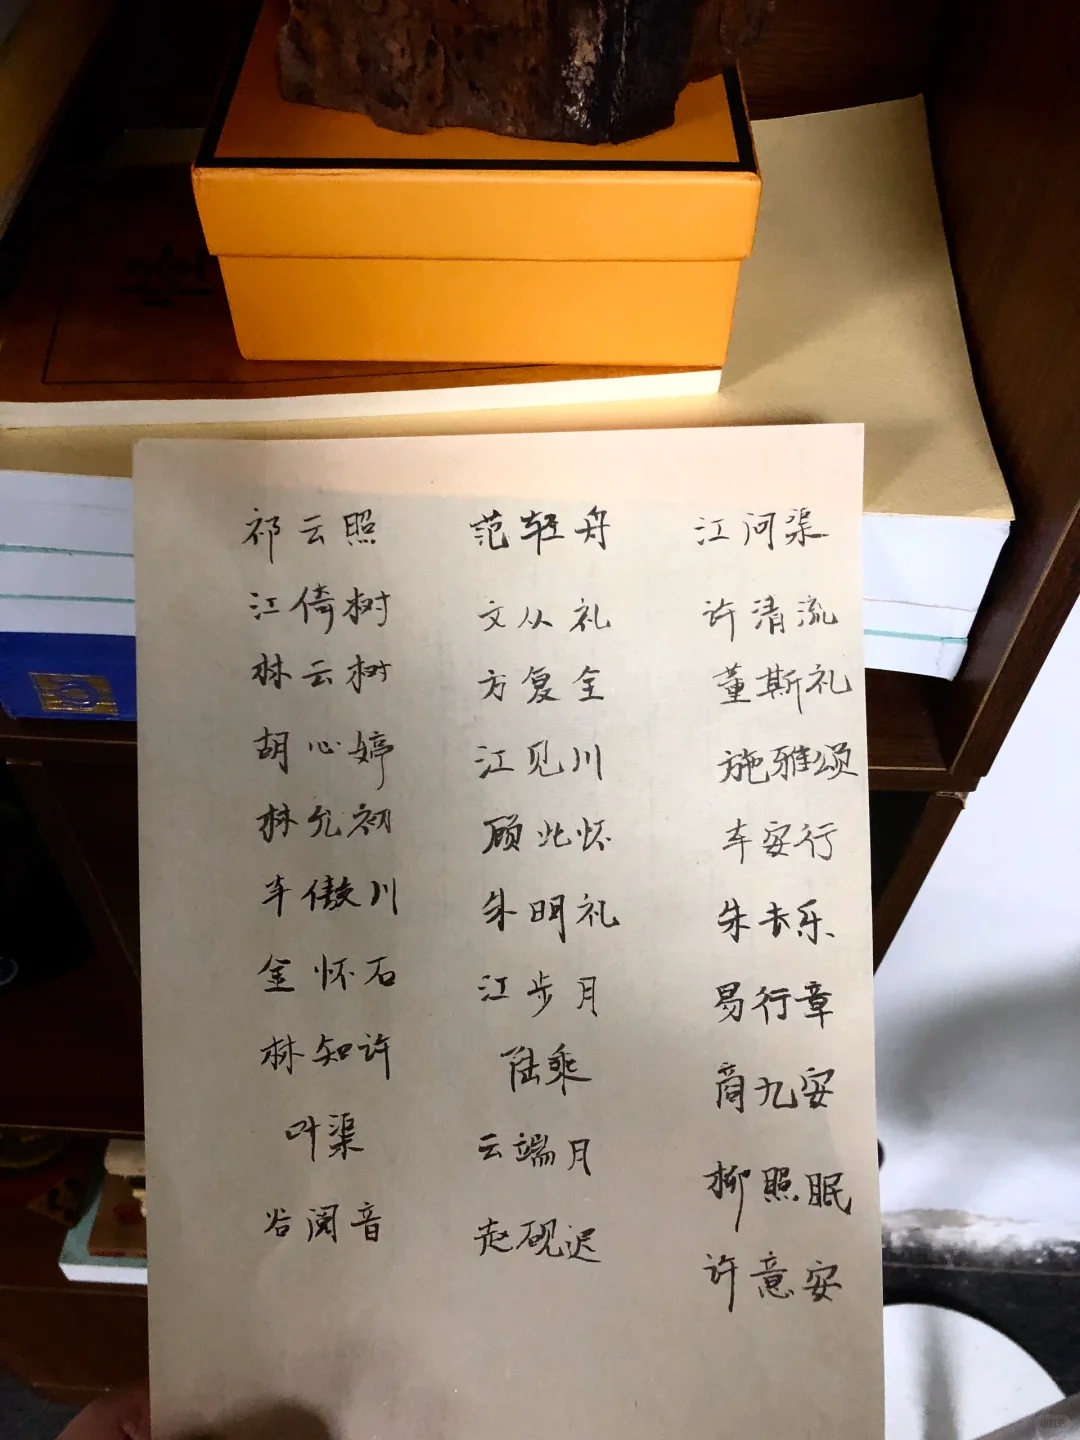 祁云照 范轻舟 江问渠
江倚树 文从礼 许清流
林云树 方复全 董斯礼
胡心婷 江见川 施雅颂
林允初 顾兆怀 车安行
车傲川 朱明礼 朱未乐
金怀石 江步月 易行章
林知许 陆乘 商九安
叶渠 云端月 柳照眠
谷阅音 赵砚迟 许意安